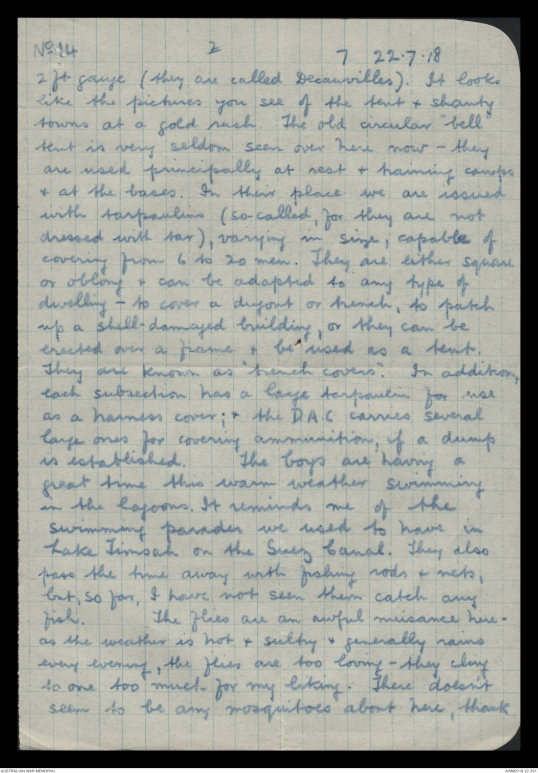 No 14 2 7 22.7.18
2 ft gauge (they are called Decauvilles). It looks
like the pictures you see of the tent + shanty
towns at a gold rush. The old circular "bell"
tent is very seldom seen over here now - they
are used principally at rest + training camps
+ at the bases. In their place we are issued
with tarpaulins (so-called, for they are not
dressed with tar), varying in size, capable of
covering from 6 to 20 men. They are either square
or oblong + can be adapted to any type of
dwelling - to cover a dugout or trench, to patch
up a shell-damaged building, or they can be
erected over a frame + be used as a tent.
They are known as "trench covers". In addition,
each subsection has a large tarpaulin for use
as a harness cover; + the D.A.C carries several
large ones for covering ammunition, if a dump
is established. The boys are having a
great time this warm weather swimming
in the lagoons. It reminds me of the
swimming parades we used to have in
Lake Timsah on the Suez Canal. They also
pass the time away with fishing rods + nets,
but, so far, I have not seen them catch any
fish. The flies are an awful nuisance here -
as the weather is hot + sultry + generally rains
every evening, the flies are too loving - they cling
to one too much for my liking. There doesn't
seem to be any mosquitoes about here, thank
AUSTRALIAN WAR MEMORIAL